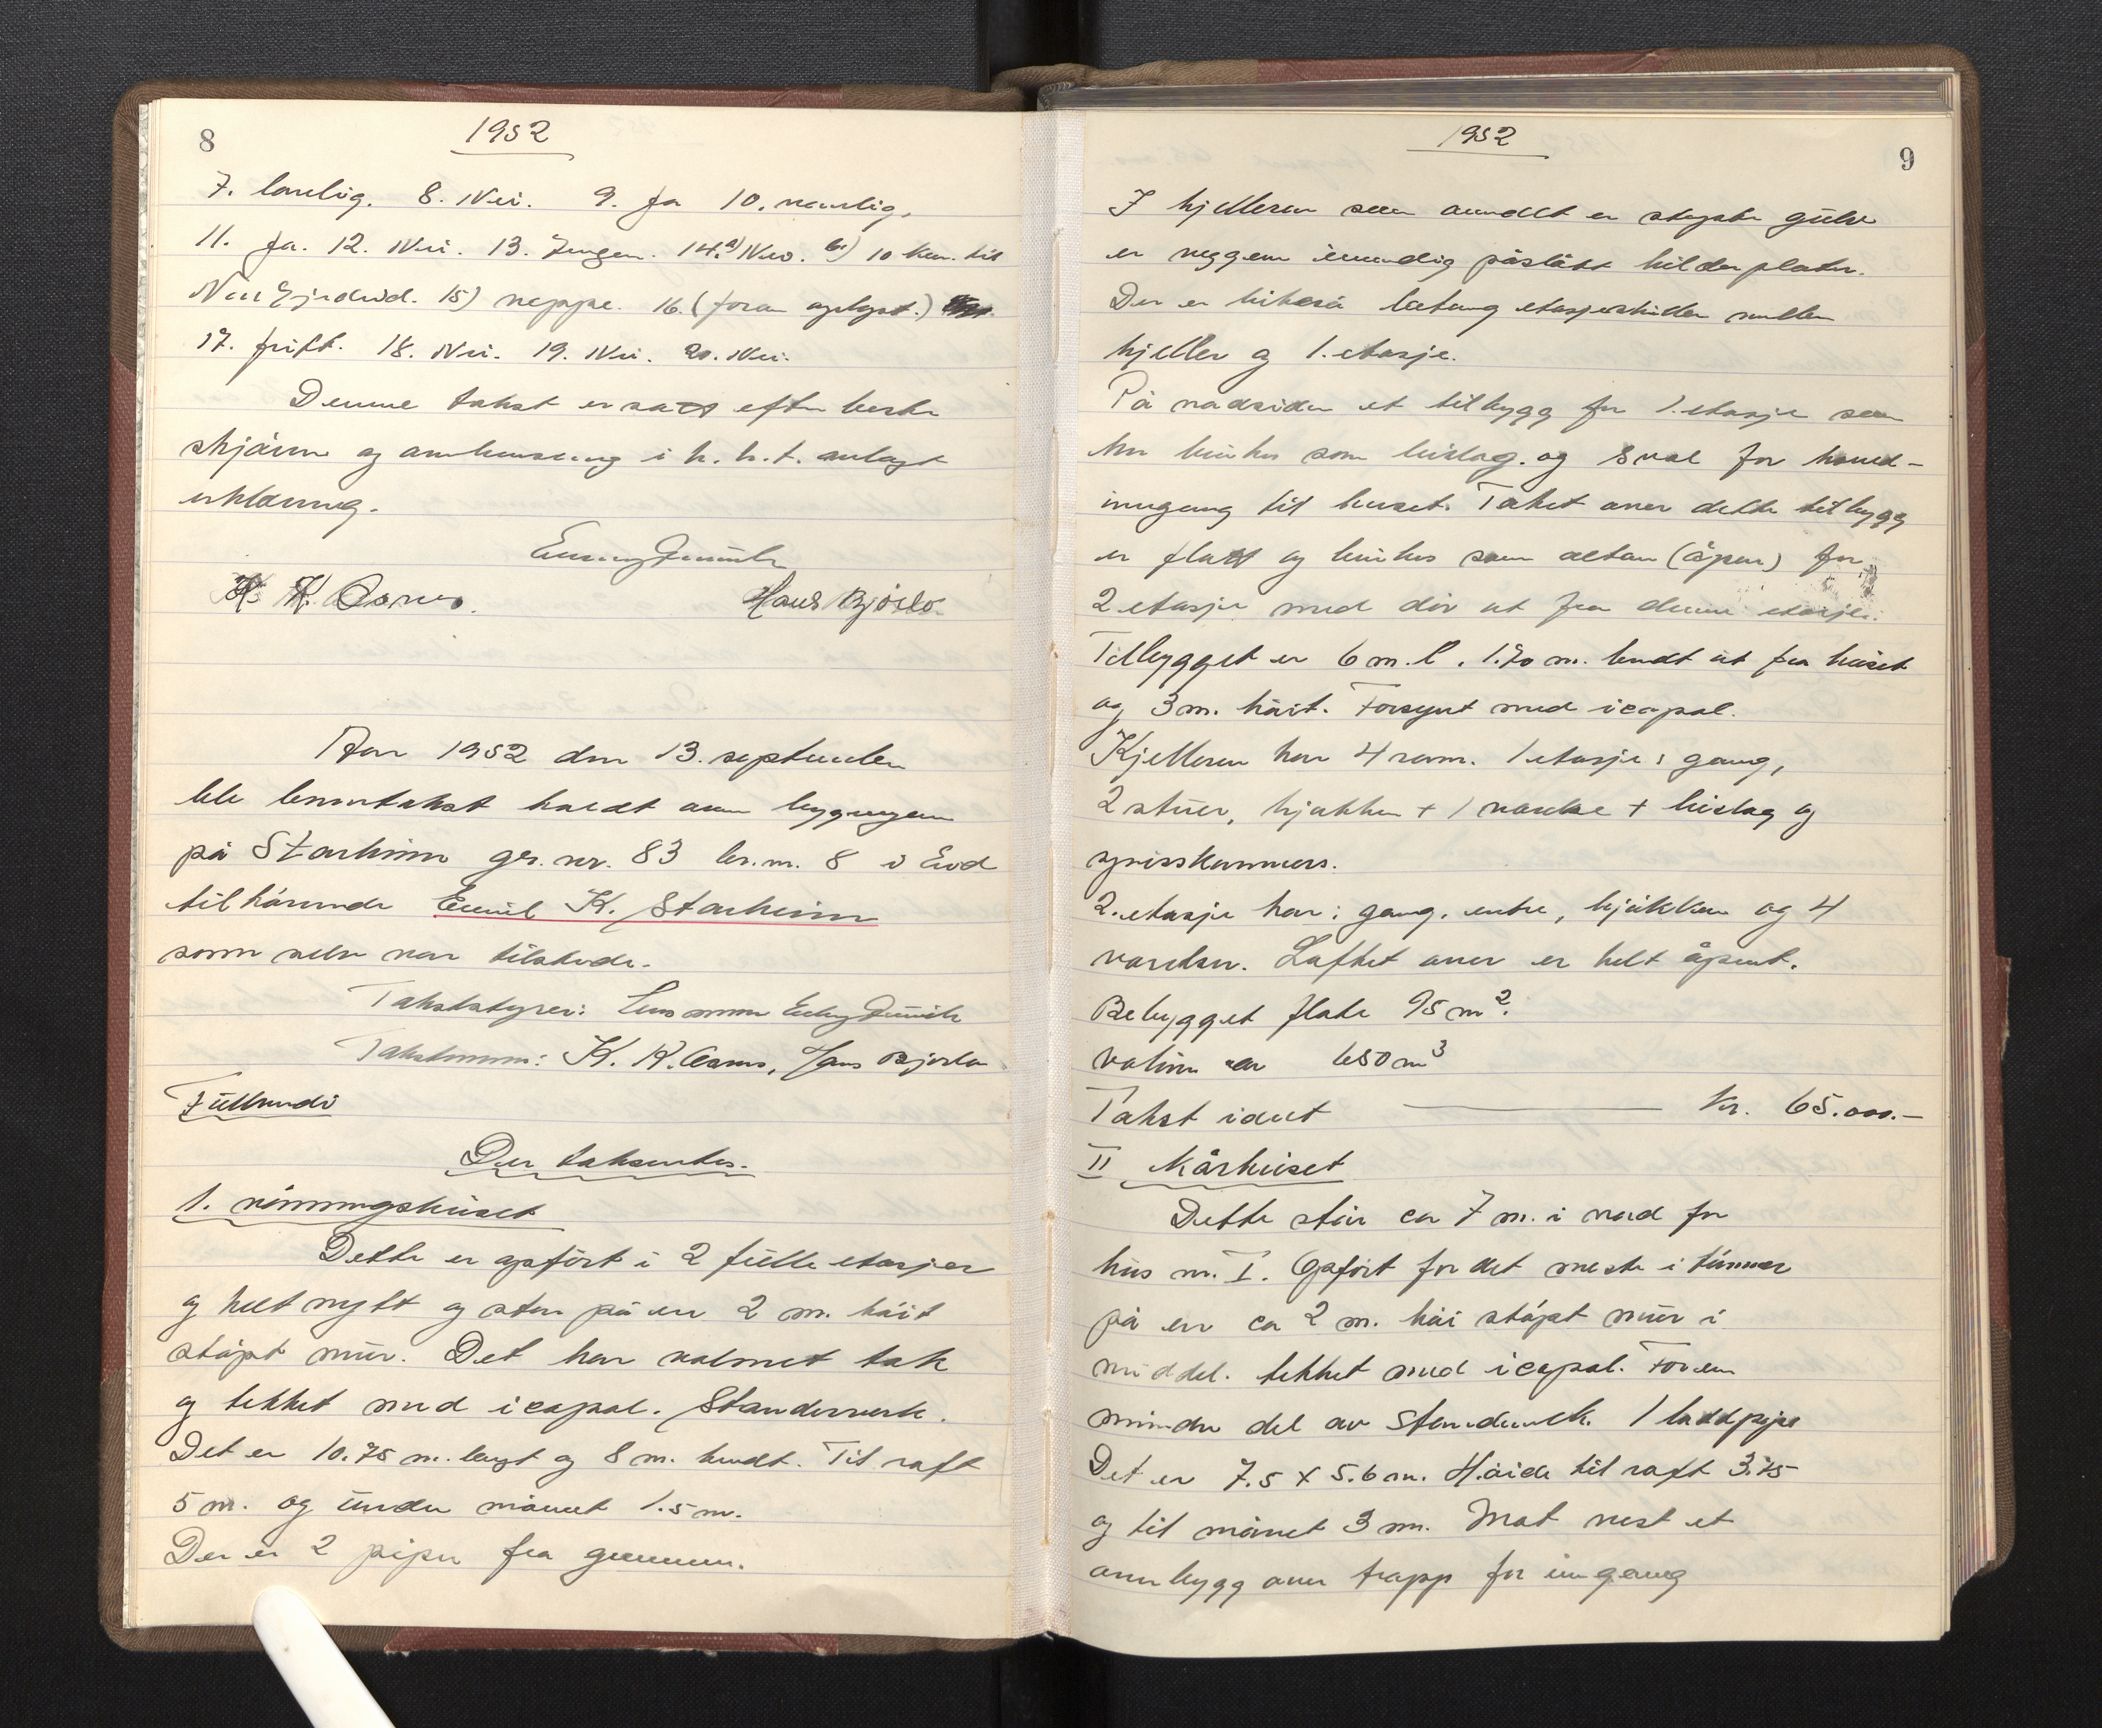 8
1952
7. lovlig. 8. Nei. 9. Ja 10. vanlig.
11. Ja. 12. Nei. 13. Ingen. 14. a) Nei. b) 10 km. til
Nordfjordeid. 15) neppe. 16. (foran oplyst.)
17. frift. 18. Nei. 19. Nei. 20. Nei.
Denne takst er satt efter beste
skjønn og overbevisning i h. h. t. avlagt
erklæring.
K. K. Aarnes. Hans Bjørlo.
Aar 1952 den 13. september
ble branntakst holdt over bygningen
på Starheim gr. nr. 83 br. nr. 8 i Eid
tilhørende Emil K. Starheim
som selv var tilstede.
Takstbestyrer: Lensmann
Takstmenn: K. K. Aarnes, Hans Bjørlo
Fullverdi
Der takseres.
1. våningshuset
Dette er opført i 2 fulle etasjer
og helt nytt og står på en 2 m. høit
støpt mur. Det har valmet tak
og tekket med icopal. Standerverk.
Det er 10.75 m. langt og 8 m. bredt. Til raft
5 m. og under mønet 1.5 m.
Der er 2 piper fra grunnen.
9
1952
I kjelleren som overalt er støpte gulv
er veggene innvendig påslått bilderplater.
Der er likeså betong etasjeskiller mellem
kjeller og 1. etasje.
På nordsiden et tilbygg for 1. etasje som
her brukes som bislag. og sval for hoved-
inngang til huset. Taket over dette tilbygg
er flatt og brukes som altan (åpen) for
2 etasje med dør ut fra denne etasje.
Tilbygget er 6 m. l. 1.70 m. bredt ut fra huset
og 3 m. høit. Forsynt med icopal.
Kjelleren har 4 rom. 1 etasje: gang,
2 stuer, kjøkken + 1 værelse + bislag og
spisskammers.
2. etasje har: gang. entre, kjøkken og 4
værelser. Loftet over er helt åpent.
Bebygget flate 95 m2.
volum ca 650 m3
Takst idut — kr. 65.000.-
II Kårhuset
Dette står ca 7 m. i nord for
hus nr. I. Opført for det meste i tømmer
på en ca 2 m. høi støpt mur i
middel. tekket med icopal. For en
mindre del av standerverk. 1 laddpipe
Det er 7.5 x 5.6 m. Høide til raft 3.75
og til mønet 3 m. Mot vest et
overbygg over trapp for inngang